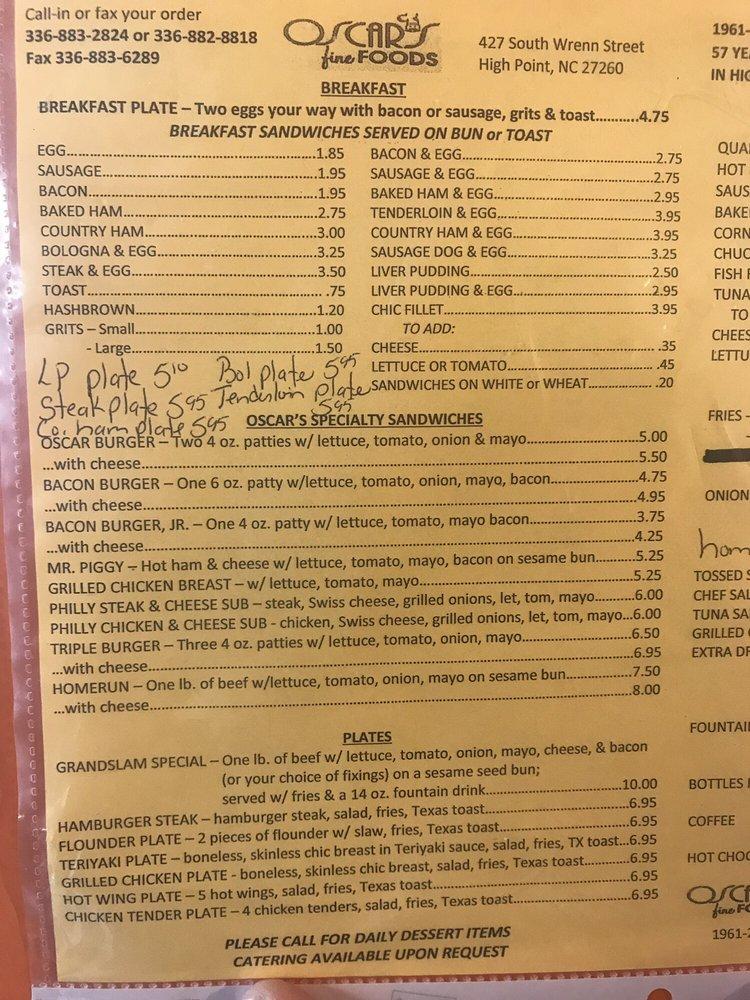 Call-in or fax your order
336-883-2824 or 336-882-8818
Fax 336-883-6289
OSCAR'S
fine FOODS
427 South Wrenn Street
High Point, NC 27260
BREAKFAST
BREAKFAST PLATE – Two eggs your way with bacon or sausage, grits & toast...........4.75
BREAKFAST SANDWICHES SERVED ON BUN or TOAST
EGG...1.85
SAUSAGE...1.95
BACON...1.95
BAKED HAM...2.75
COUNTRY HAM...3.00
BOLOGNA & EGG...3.25
STEAK & EGG...3.50
TOAST....75
HASHBROWN...1.20
GRITS – Small...1.00
- Large...1.50
BACON & EGG...2.75
SAUSAGE & EGG...2.75
BAKED HAM & EGG...2.95
TENDERLOIN & EGG...3.95
COUNTRY HAM & EGG...3.95
SAUSAGE DOG & EGG...3.25
LIVER PUDDING...2.50
LIVER PUDDING & EGG...2.95
CHIC FILLET...3.95
TO ADD:
CHEESE....35
LETTUCE OR TOMATO....45
SANDWICHES ON WHITE or WHEAT....20
LP plate 510 Bol plate 595
Steak plate 595 Tenderloin plate 595
Co. ham plate 595
OSCAR'S SPECIALTY SANDWICHES
OSCAR BURGER – Two 4 oz. patties w/ lettuce, tomato, onion & mayo...5.00
...with cheese...5.50
BACON BURGER – One 6 oz. patty w/lettuce, tomato, onion, mayo, bacon...4.75
...with cheese...4.95
BACON BURGER, JR. – One 4 oz. patty w/ lettuce, tomato, mayo bacon...3.75
...with cheese...4.25
MR. PIGGY – Hot ham & cheese w/ lettuce, tomato, mayo, bacon on sesame bun...5.25
GRILLED CHICKEN BREAST – w/ lettuce, tomato, mayo...5.25
PHILLY STEAK & CHEESE SUB – steak, Swiss cheese, grilled onions, let, tom, mayo...6.00
PHILLY CHICKEN & CHEESE SUB - chicken, Swiss cheese, grilled onions, let, tom, mayo...6.00
TRIPLE BURGER – Three 4 oz. patties w/ lettuce, tomato, onion, mayo...6.50
...with cheese...6.95
HOMERUN – One lb. of beef w/lettuce, tomato, onion, mayo on sesame bun...7.50
...with cheese...8.00
PLATES
GRANDSLAM SPECIAL – One lb. of beef w/ lettuce, tomato, onion, mayo, cheese, & bacon
(or your choice of fixings) on a sesame seed bun;
served w/ fries & a 14 oz. fountain drink...10.00
HAMBURGER STEAK – hamburger steak, salad, fries, Texas toast...6.95
FLOUNDER PLATE – 2 pieces of flounder w/ slaw, fries, Texas toast...6.95
TERIYAKI PLATE – boneless, skinless chic breast in Teriyaki sauce, salad, fries, TX toast...6.95
GRILLED CHICKEN PLATE - boneless, skinless chic breast, salad, fries, Texas toast...6.95
HOT WING PLATE – 5 hot wings, salad, fries, Texas toast...6.95
CHICKEN TENDER PLATE – 4 chicken tenders, salad, fries, Texas toast...6.95
PLEASE CALL FOR DAILY DESSERT ITEMS
CATERING AVAILABLE UPON REQUEST
1961-
57 YE
IN HIG
QUA
HOT
SAUS
BAKE
CORN
CHUC
FISH F
TUNA
TO
CHEES
LETTU
FRIES -
ONION
hom
TOSSED S
CHEF SAL
TUNA SA
GRILLED
EXTRA DR
FOUNTAI
BOTTLES
COFFEE
HOT CHOC
OSCA
fine FO
1961-2